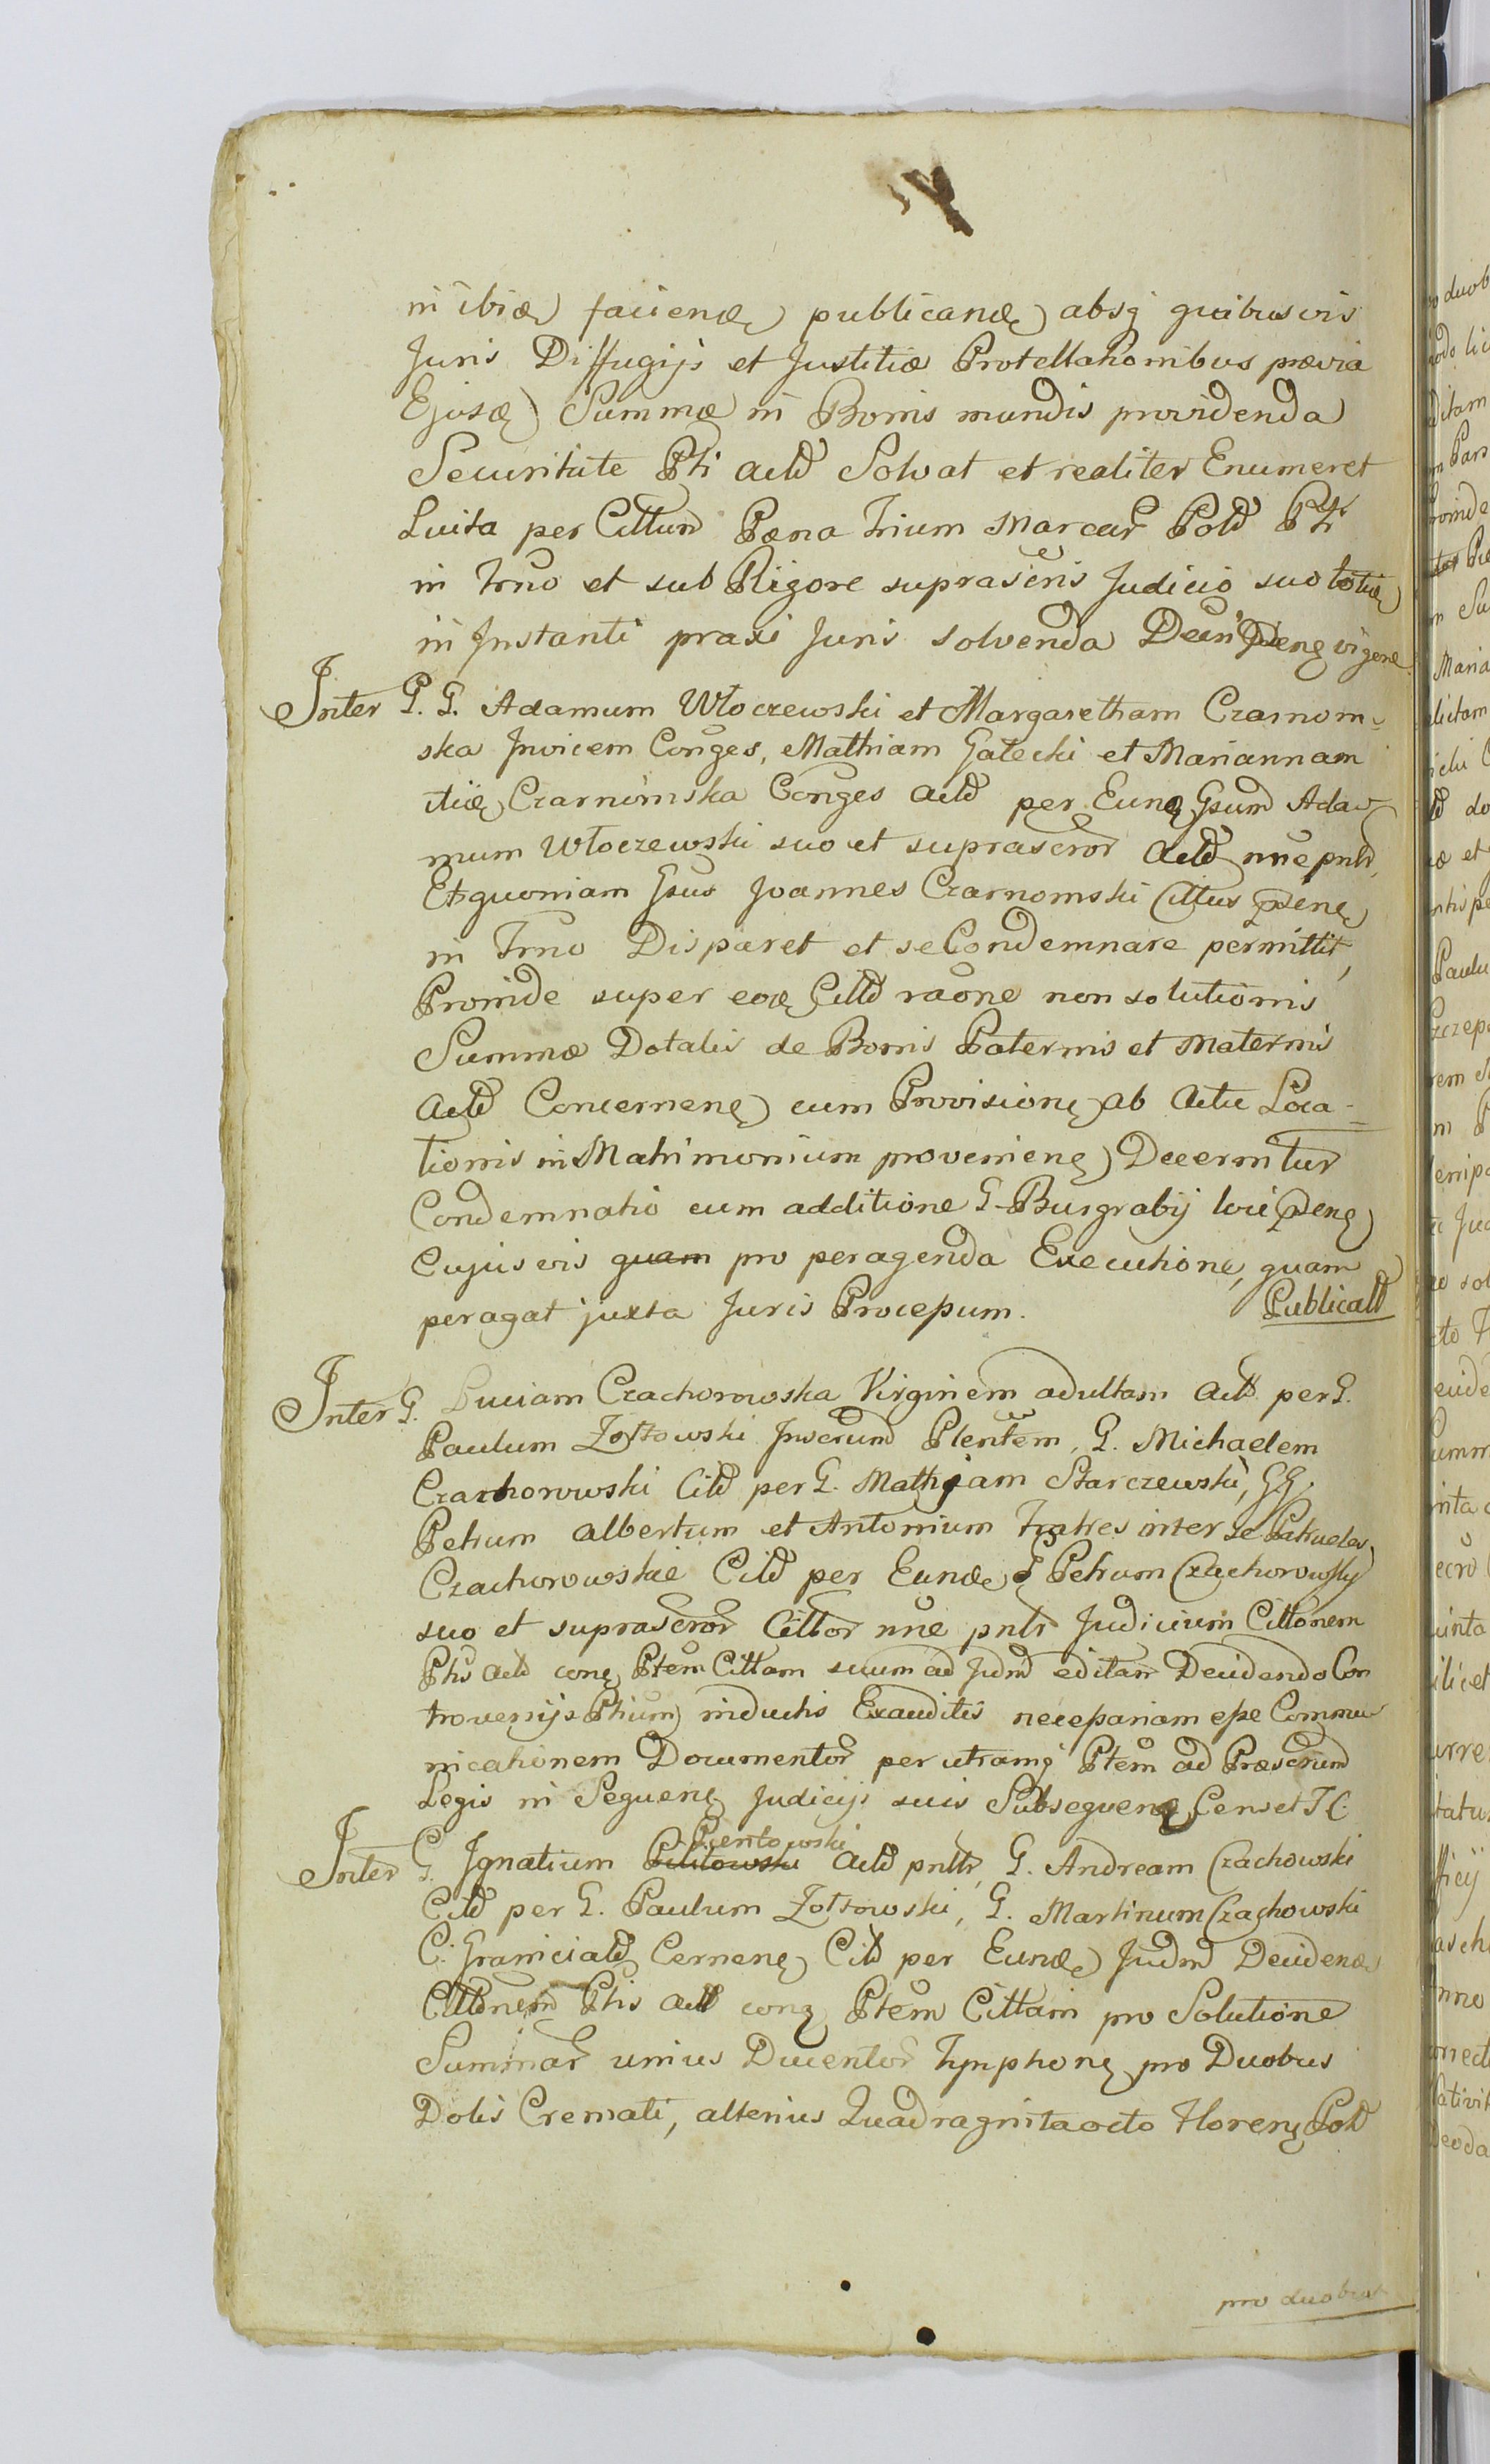 in ibid faciend publicand absq quibusvis
Juris Diffugijs et Justitiæ Protellationibus prævia
Ejusd Summæ in Bonis mundis providenda
Securitate Pti actd Solvat et realiter Enumeret
Luita per Cittum Pæna Trium Marcar Pold Pti
in Trno et sub Rigore suprascris Judicio suo toties
in Instanti praxi Juris solvenda Decri pñs vigore
Inter G. G. Adamum Włoczewski et Margaretham Czarnom-
ska Invicem Conges, Mathiam Gałecki et Mariannam
itid Czarnomska Conges actd per Eund Gsum Ada-
mum Włoczewski suo et suprascror Actd nne pntr,
Et quoniam Gsus Joannes Czarnomski Cittus pdens
in Trno Disparet et se Condemnare permittit,
Proinde super eod Cittd raone non solutionis
Summæ Dotalis de Bonis Paternis et Maternis
actd Concernens cum Provisione ab Actu Loca-
tionis in Matrimonium proveniens Decernitur
Condemnatio cum additione G. Burgrabij loci pdens
Cujusvis quam pro peragenda Executione, quam
peragat juxta Juris Processum. Publicatd
Inter G. Luciam Czachorowska Virginem adultam Actd per G.
Paulum Żółtowski Inscrum Plentem, G. Michaelem
Czachorowski Citd per G. Mathiam Starczewski, GG.
Petrum Albertum et Antonium Fratres inter se Patrueles
Czachorowskie Citd per Eund G Petrum Czachorowski
suo et suprascror Cittor nne pntr Judicium Cittonem
Ptis actd cong Ptem Cittam suum ad Judm editam Decidendo Con
troversijs Ptium inductis Exauditis necessariam esse Commu-
nicationem Documentor per utramq Ptem ad Præscrum
Legis in Sequens Judicijs suis Subsequens Censet J C.
Inter G. Ignatium Pilitowski Pientowski Actd pntr, G. Andream Czachowski
Citd per G. Paulum Żółtowski, G. Martinum Czachowski
C. Graniciald Cernens Citd per Eund Judm Decidend
Cittonem Ptis actd cong Ptem Cittam pro Solutione
Summar unius Ducentor Tynphons pro Duobus
Dolis Cremati, alterius Quadraginta octo Florens Pold
pro duobus